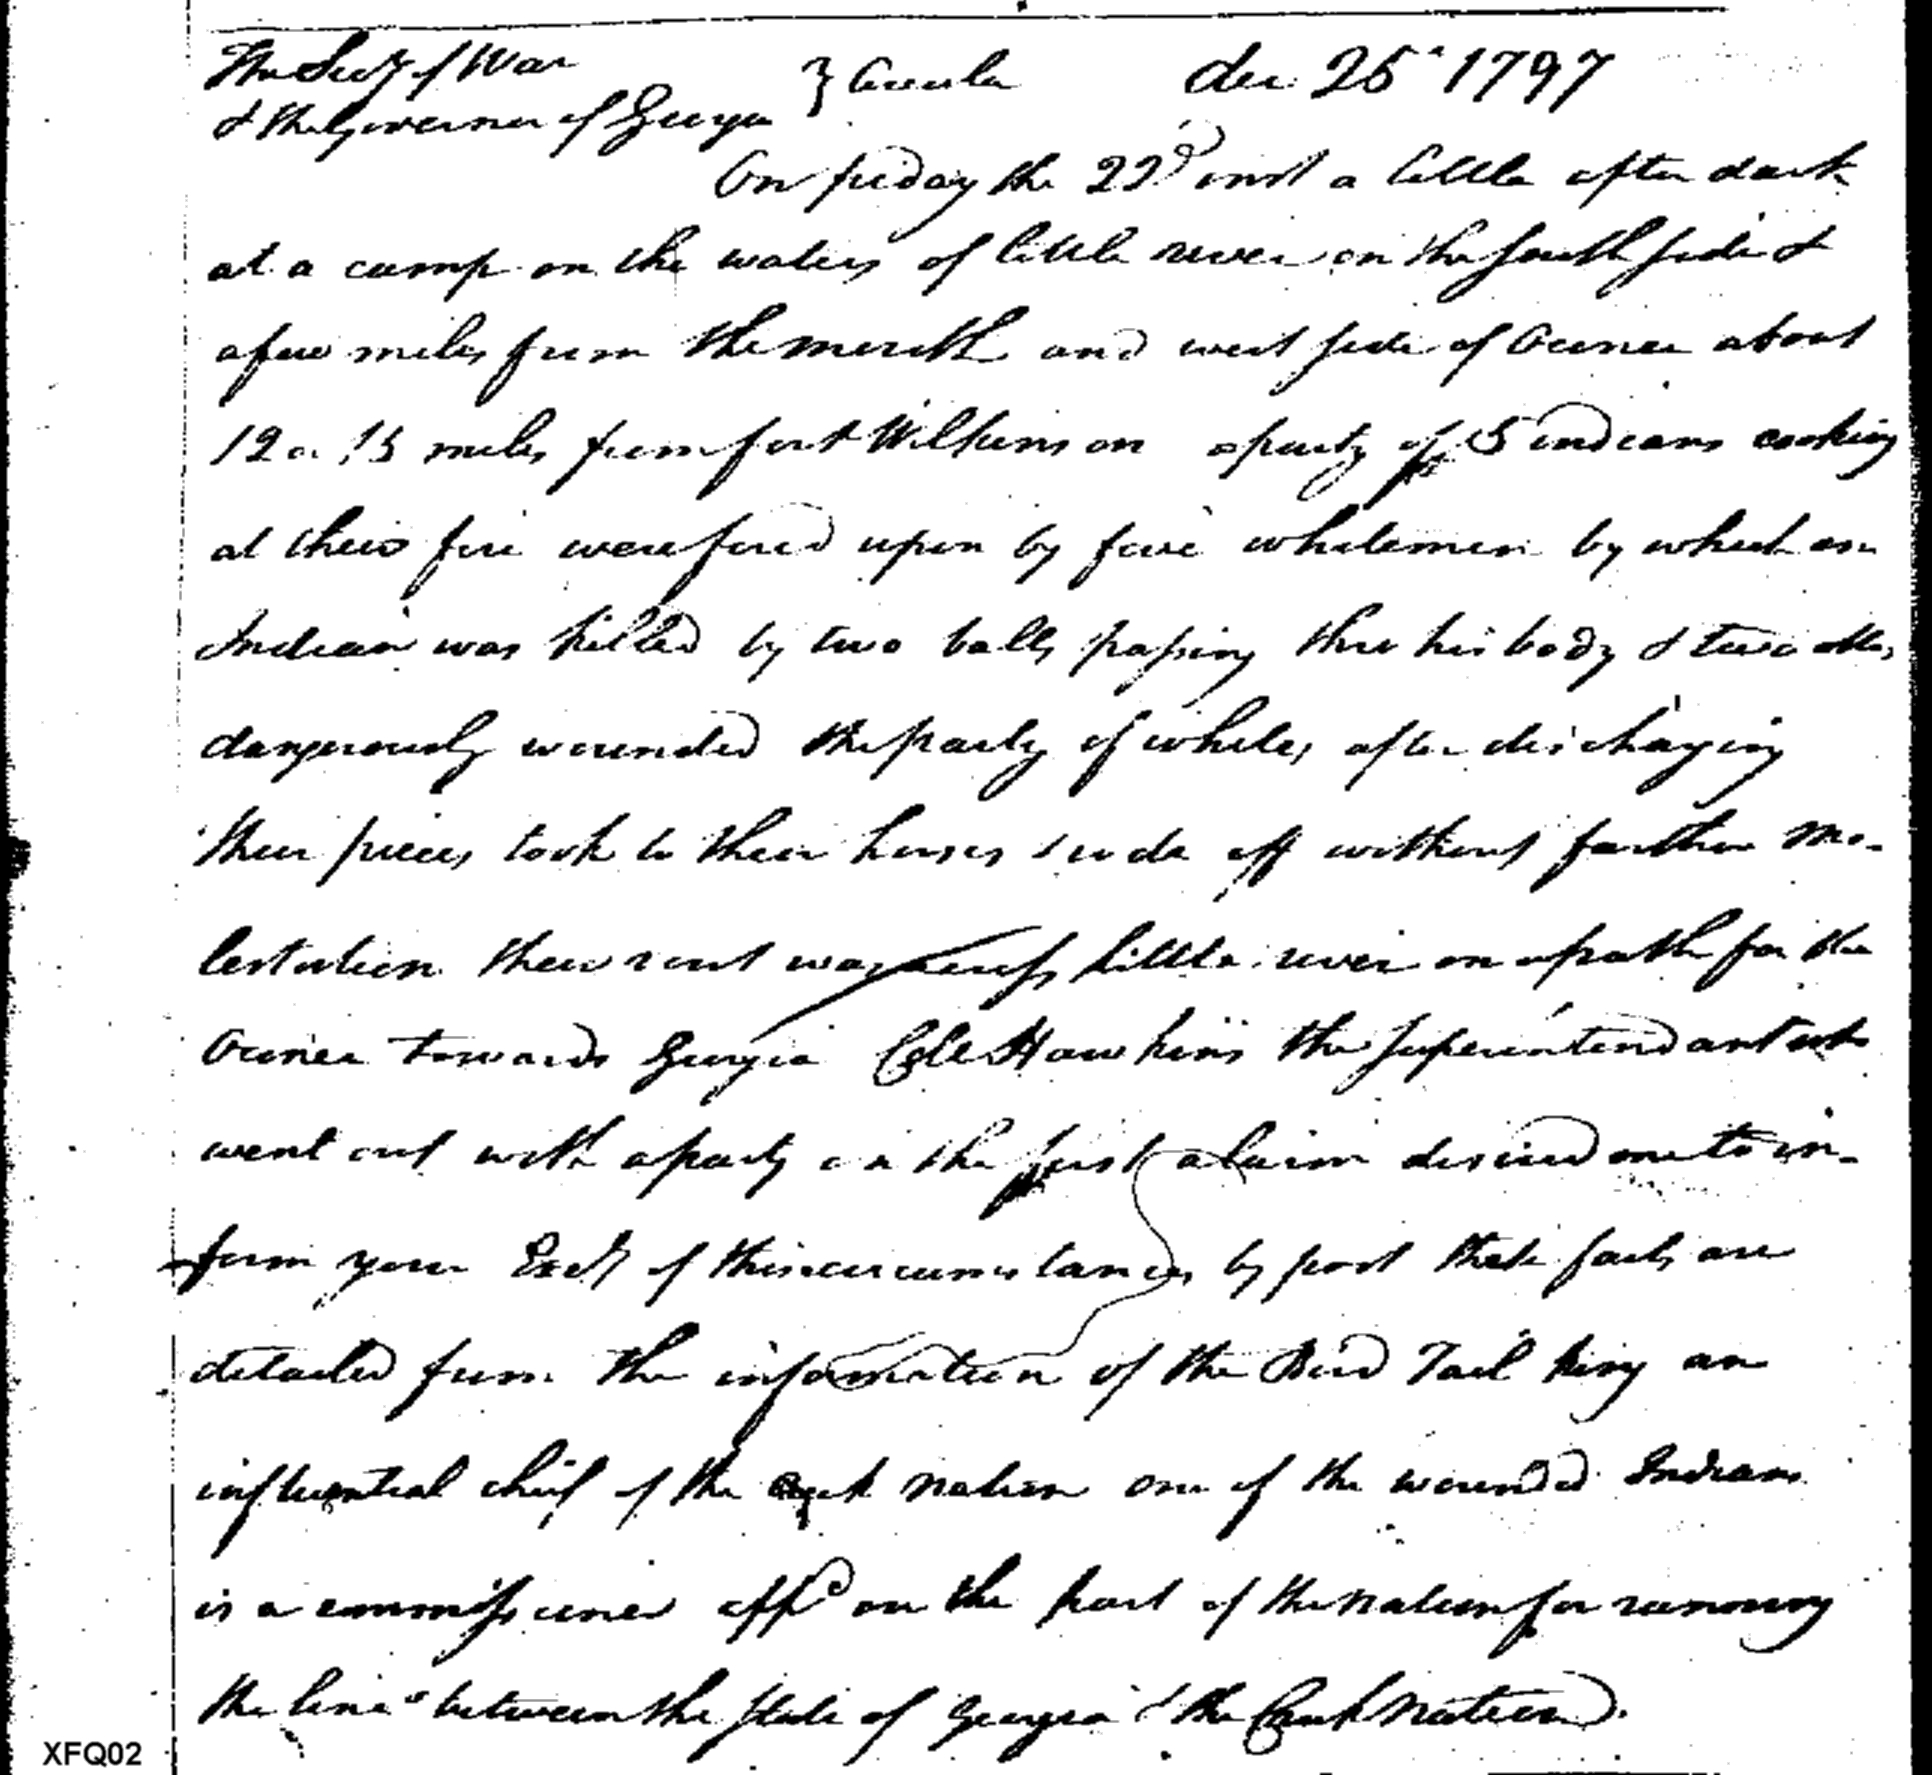 The Secy of War
& the Governor of Georgia } Circular dec 25th 1797
On friday the 22d inst a little after dark
at a camp on the waters of little river on the south side &
a few miles from the mouth and west side of Oconee about
12 or 15 miles from fort Wilkinson a party of 5 indians cooking
at their fire were fired upon by five whitemen by which one
Indian was killed by two balls passing thro his body & two others
dangerously wounded the party of whites after discharging
their pieces took to their horses & rode off without farther mo-
lestation their rout was across little river on a path for the
Oconee towards Georgia Colo Hawkins the superintendant who
went out with a party on the first alarm desired me to in-
form your Excy of this circumstances by post these facts are
detailed from the information of the Bird Tail king an
influential chief of the creek nation one of the wounded Indians
is a commissioner appd on the part of the nation for running
the line between the state of Georgia & the Creek Nation.
XFQ02